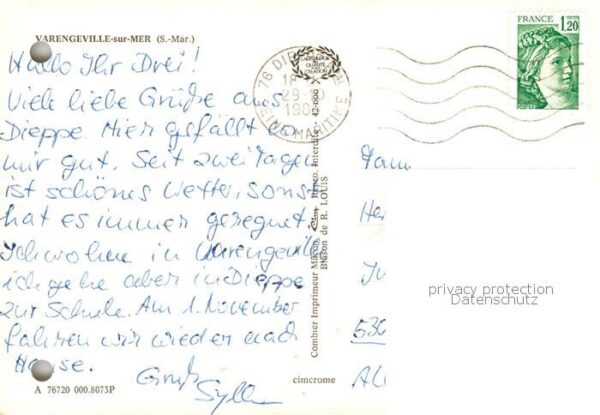 VARENGEVILLE-sur-MER (S.-Mar.)
Hallo Ihr Drei!
Viele liebe Grüße aus
Dieppe. Hier gefällt es
mir gut. Seit zwei Tagen
ist schönes Wetter, sonst
hat es immer geregnet.
Ich wohne in Varengeville
ich gehe aber in Dieppe
zur Schule. Am 1. November
fahren wir wieder nach
Hause.
Gruß
A 76720 000.8073P
cimcrome
Combier Imprimeur Mâcon
Repro. Interdite. 42-000
Blason de R. LOUIS
76 DIEPPE
SEINE MARITIME
FRANCE
1,20
Fam
He
530
privacy protection
Datenschutz